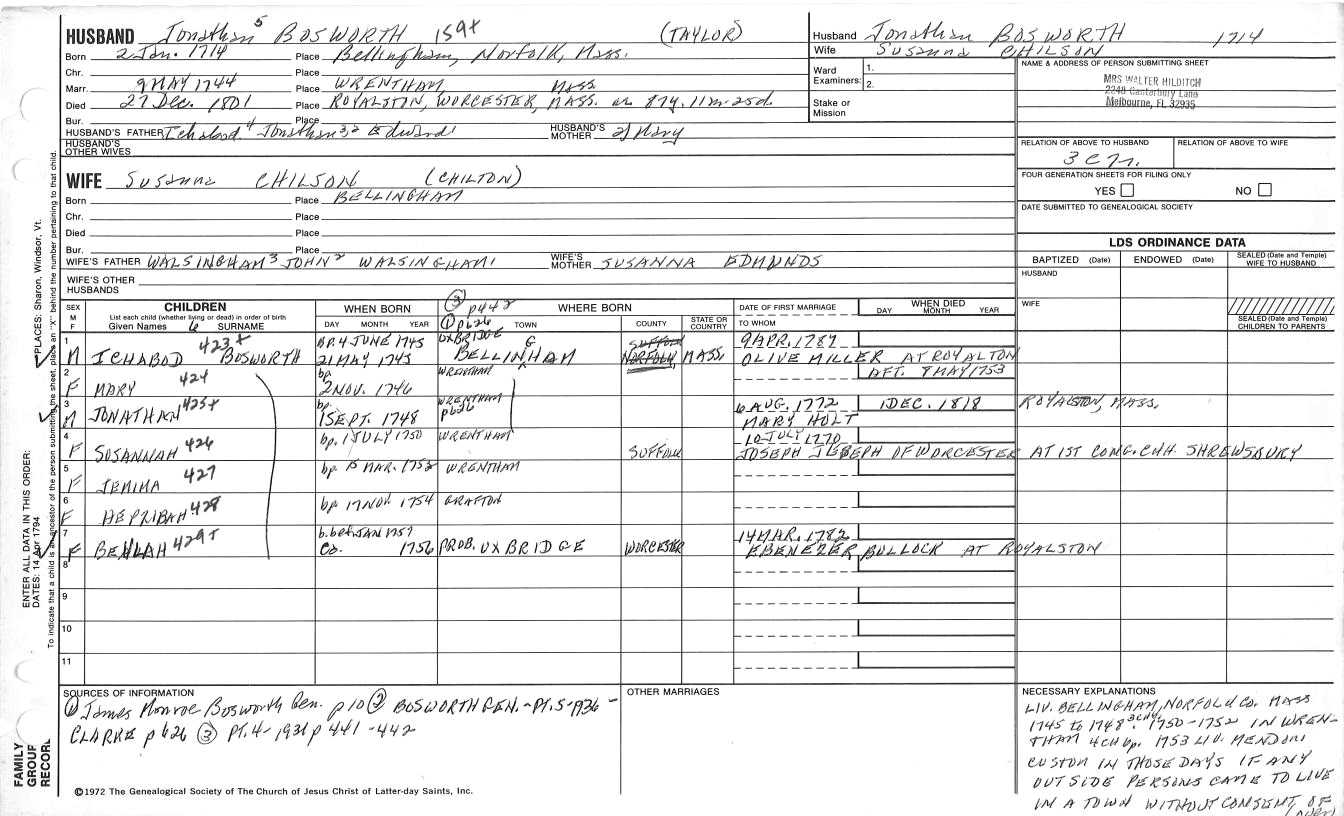 HUSBAND Jonathan 5 BOSWORTH 159+ (TAYLOR)
Born 2 Jan. 1714 Place Bellingham, Norfolk, Mass.
Chr. Place
Marr. 9 MAY 1744 Place WRENTHAM MASS
Died 27 Dec. 1801 Place ROYALSTON, WORCESTER, MASS. 87y. 11m. 25d.
Bur. Place
HUSBAND'S FATHER Ichabod 4 Jonathan 3,2 Edward 1 HUSBAND'S MOTHER 2) Mary
HUSBAND'S OTHER WIVES
WIFE SUSANNA CHILSON (CHILTON)
Born Place BELLINGHAM
Chr. Place
Died Place
Bur. Place
WIFE'S FATHER WALSINGHAM 3 JOHN 2 WALSINGHAM 1 WIFE'S MOTHER SUSANNA EDMUNDS
WIFE'S OTHER HUSBANDS
Husband Jonathan BOSWORTH 1714
Wife Susanna CHILSON
Ward Examiners: 1.
2.
Stake or Mission
NAME & ADDRESS OF PERSON SUBMITTING SHEET
MRS WALTER HILDITCH
2240 Canterbury Lane
Melbourne, FL 32935
RELATION OF ABOVE TO HUSBAND RELATION OF ABOVE TO WIFE
FOUR GENERATION SHEETS FOR FILING ONLY
YES NO
DATE SUBMITTED TO GENEALOGICAL SOCIETY
LDS ORDINANCE DATA
BAPTIZED (Date) ENDOWED (Date) SEALED (Date and Temple) WIFE TO HUSBAND
HUSBAND
WIFE
SEALED (Date and Temple) CHILDREN TO PARENTS
SEX M F
CHILDREN
List each child (whether living or dead) in order of birth
Given Names 6 SURNAME
WHEN BORN
DAY MONTH YEAR
③ p442
① p626
WHERE BORN
TOWN COUNTY STATE OR COUNTRY
DATE OF FIRST MARRIAGE
TO WHOM
WHEN DIED
DAY MONTH YEAR
1 M ICHABOD 423+ BOSWORTH BP. 4 JUNE 1745 21 MAY 1745 UXBRIDGE BELLINGHAM SUFFOLK NORFOLK MASS. 9 APR. 1787 OLIVE MILLER AT ROYALTON
2 F MARY 424 bp 2 NOV. 1746 WRENTHAM AFT. 8 MAY 1753
3 M JONATHAN 425+ bp. 1 SEPT. 1748 WRENTHAM p626 6 AUG. 1772 MARY HOLT 1 DEC. 1818 ROYALSTON, MASS.
4 F SUSANNAH 426 bp. 1 JULY 1750 WRENTHAM SUFFOLK 10 JULY 1770 JOSEPH OF WORCESTER AT 1ST CONG. CHH. SHREWSBURY
5 F JEMIMA 427 bp 15 MAR. 1752 WRENTHAM
6 F HEPZIBAH 428 bp 17 NOV 1754 GRAFTON
7 F BEULAH 429+ b. bef JAN 1757 Ca. 1756 PROB. UXBRIDGE WORCESTER 14 MAR. 1782 EBENEZER BULLOCK AT ROYALSTON
8
9
10
11
SOURCES OF INFORMATION
① James Monroe Bosworth Gen. p 10 ② BOSWORTH GEN. - PT. 5 - 1936 -
CLARKE p 626 ③ PT. 4 - 1931 p 441 - 442
OTHER MARRIAGES
NECESSARY EXPLANATIONS
LIV. BELLINGHAM, NORFOLK CO. MASS
1745 to 1748 3 CH. 1750-1752 IN WREN-
THAM 4 CH bp. 1753 LIV. MENDON
CUSTOM IN THOSE DAYS IF ANY
OUTSIDE PERSONS CAME TO LIVE
IN A TOWN WITHOUT CONSENT OF
(over)
©1972 The Genealogical Society of The Church of Jesus Christ of Latter-day Saints, Inc.
FAMILY GROUP RECORD
ENTER ALL DATA IN THIS ORDER:
DATES: 14 Apr 1794
PLACES: Sharon, Windsor, Vt.
To indicate that a child is an ancestor of the person submitting the sheet, place an "X" behind the number pertaining to that child.